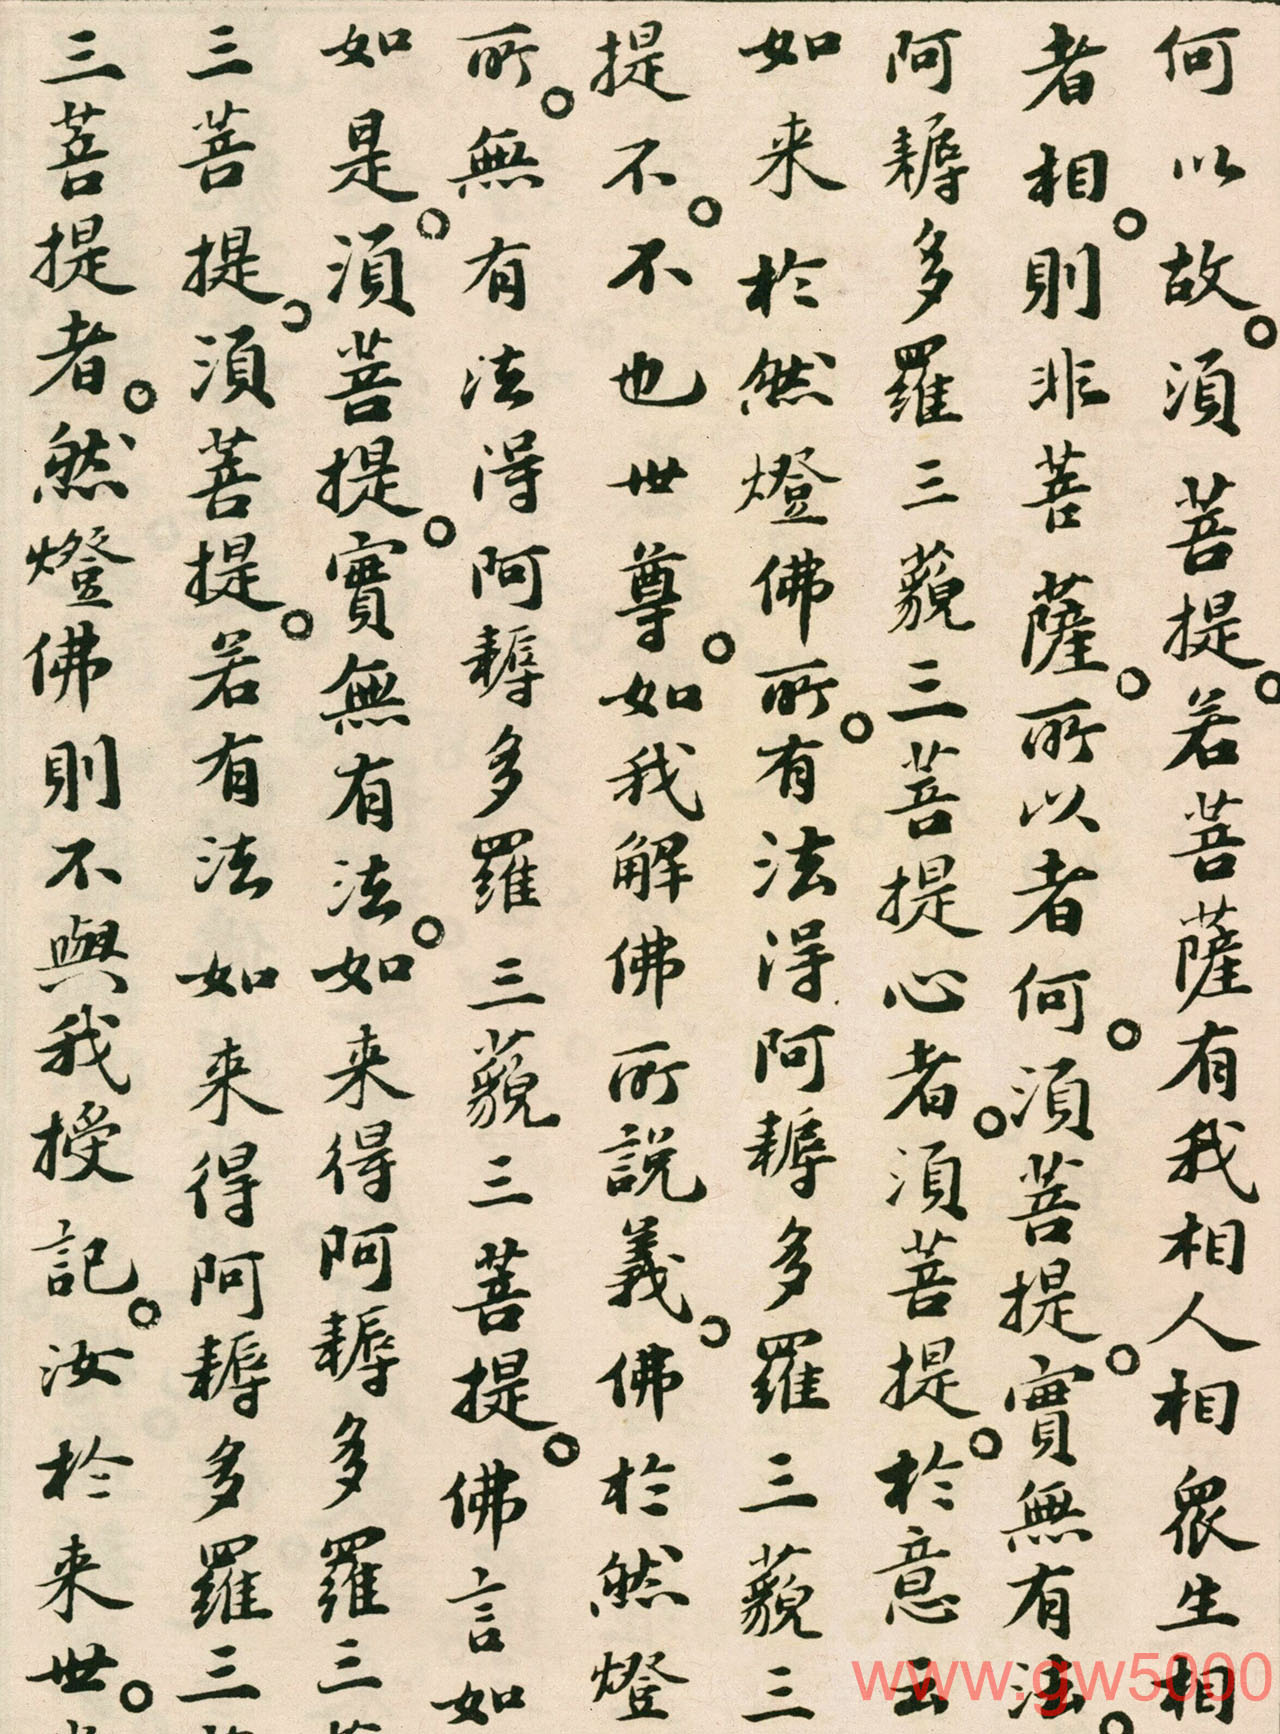 何以故。須菩提。若菩薩有我相人相眾生相
者相。則非菩薩。所以者何。須菩提。實無有法。
阿耨多羅三藐三菩提心者。須菩提。於意云
如来於然燈佛所。有法得阿耨多羅三藐三
提不。不也世尊。如我解佛所說義。佛於然燈
所。無有法得阿耨多羅三藐三菩提。佛言如
如是。須菩提。實無有法。如来得阿耨多羅三
三菩提。須菩提。若有法如来得阿耨多羅三
三菩提者。然燈佛則不與我授記。汝於来世。
www.gw5000